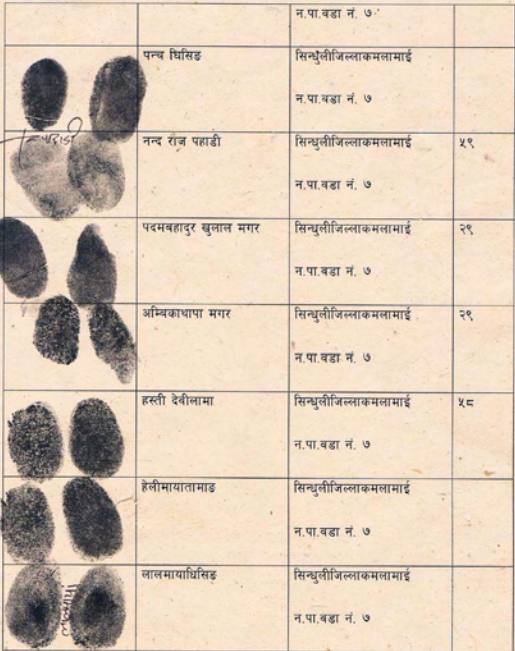 न.पा.वडा नं. ७
पन्च घिसिङ सिन्धुलीजिल्लाकमलामाई
न.पा.वडा नं. ७
पहाडी
नन्द राज पहाडी सिन्धुलीजिल्लाकमलामाई ५९
न.पा.वडा नं. ७
पदमबहादुर खुलाल मगर सिन्धुलीजिल्लाकमलामाई २९
न.पा.वडा नं. ७
अम्बिकाथापा मगर सिन्धुलीजिल्लाकमलामाई २९
न.पा.वडा नं. ७
हस्ती देवीलामा सिन्धुलीजिल्लाकमलामाई ५८
न.पा.वडा नं. ७
हेलीमायातामाङ सिन्धुलीजिल्लाकमलामाई
न.पा.वडा नं. ७
लालमायाघिसिङ सिन्धुलीजिल्लाकमलामाई
न.पा.वडा नं. ७